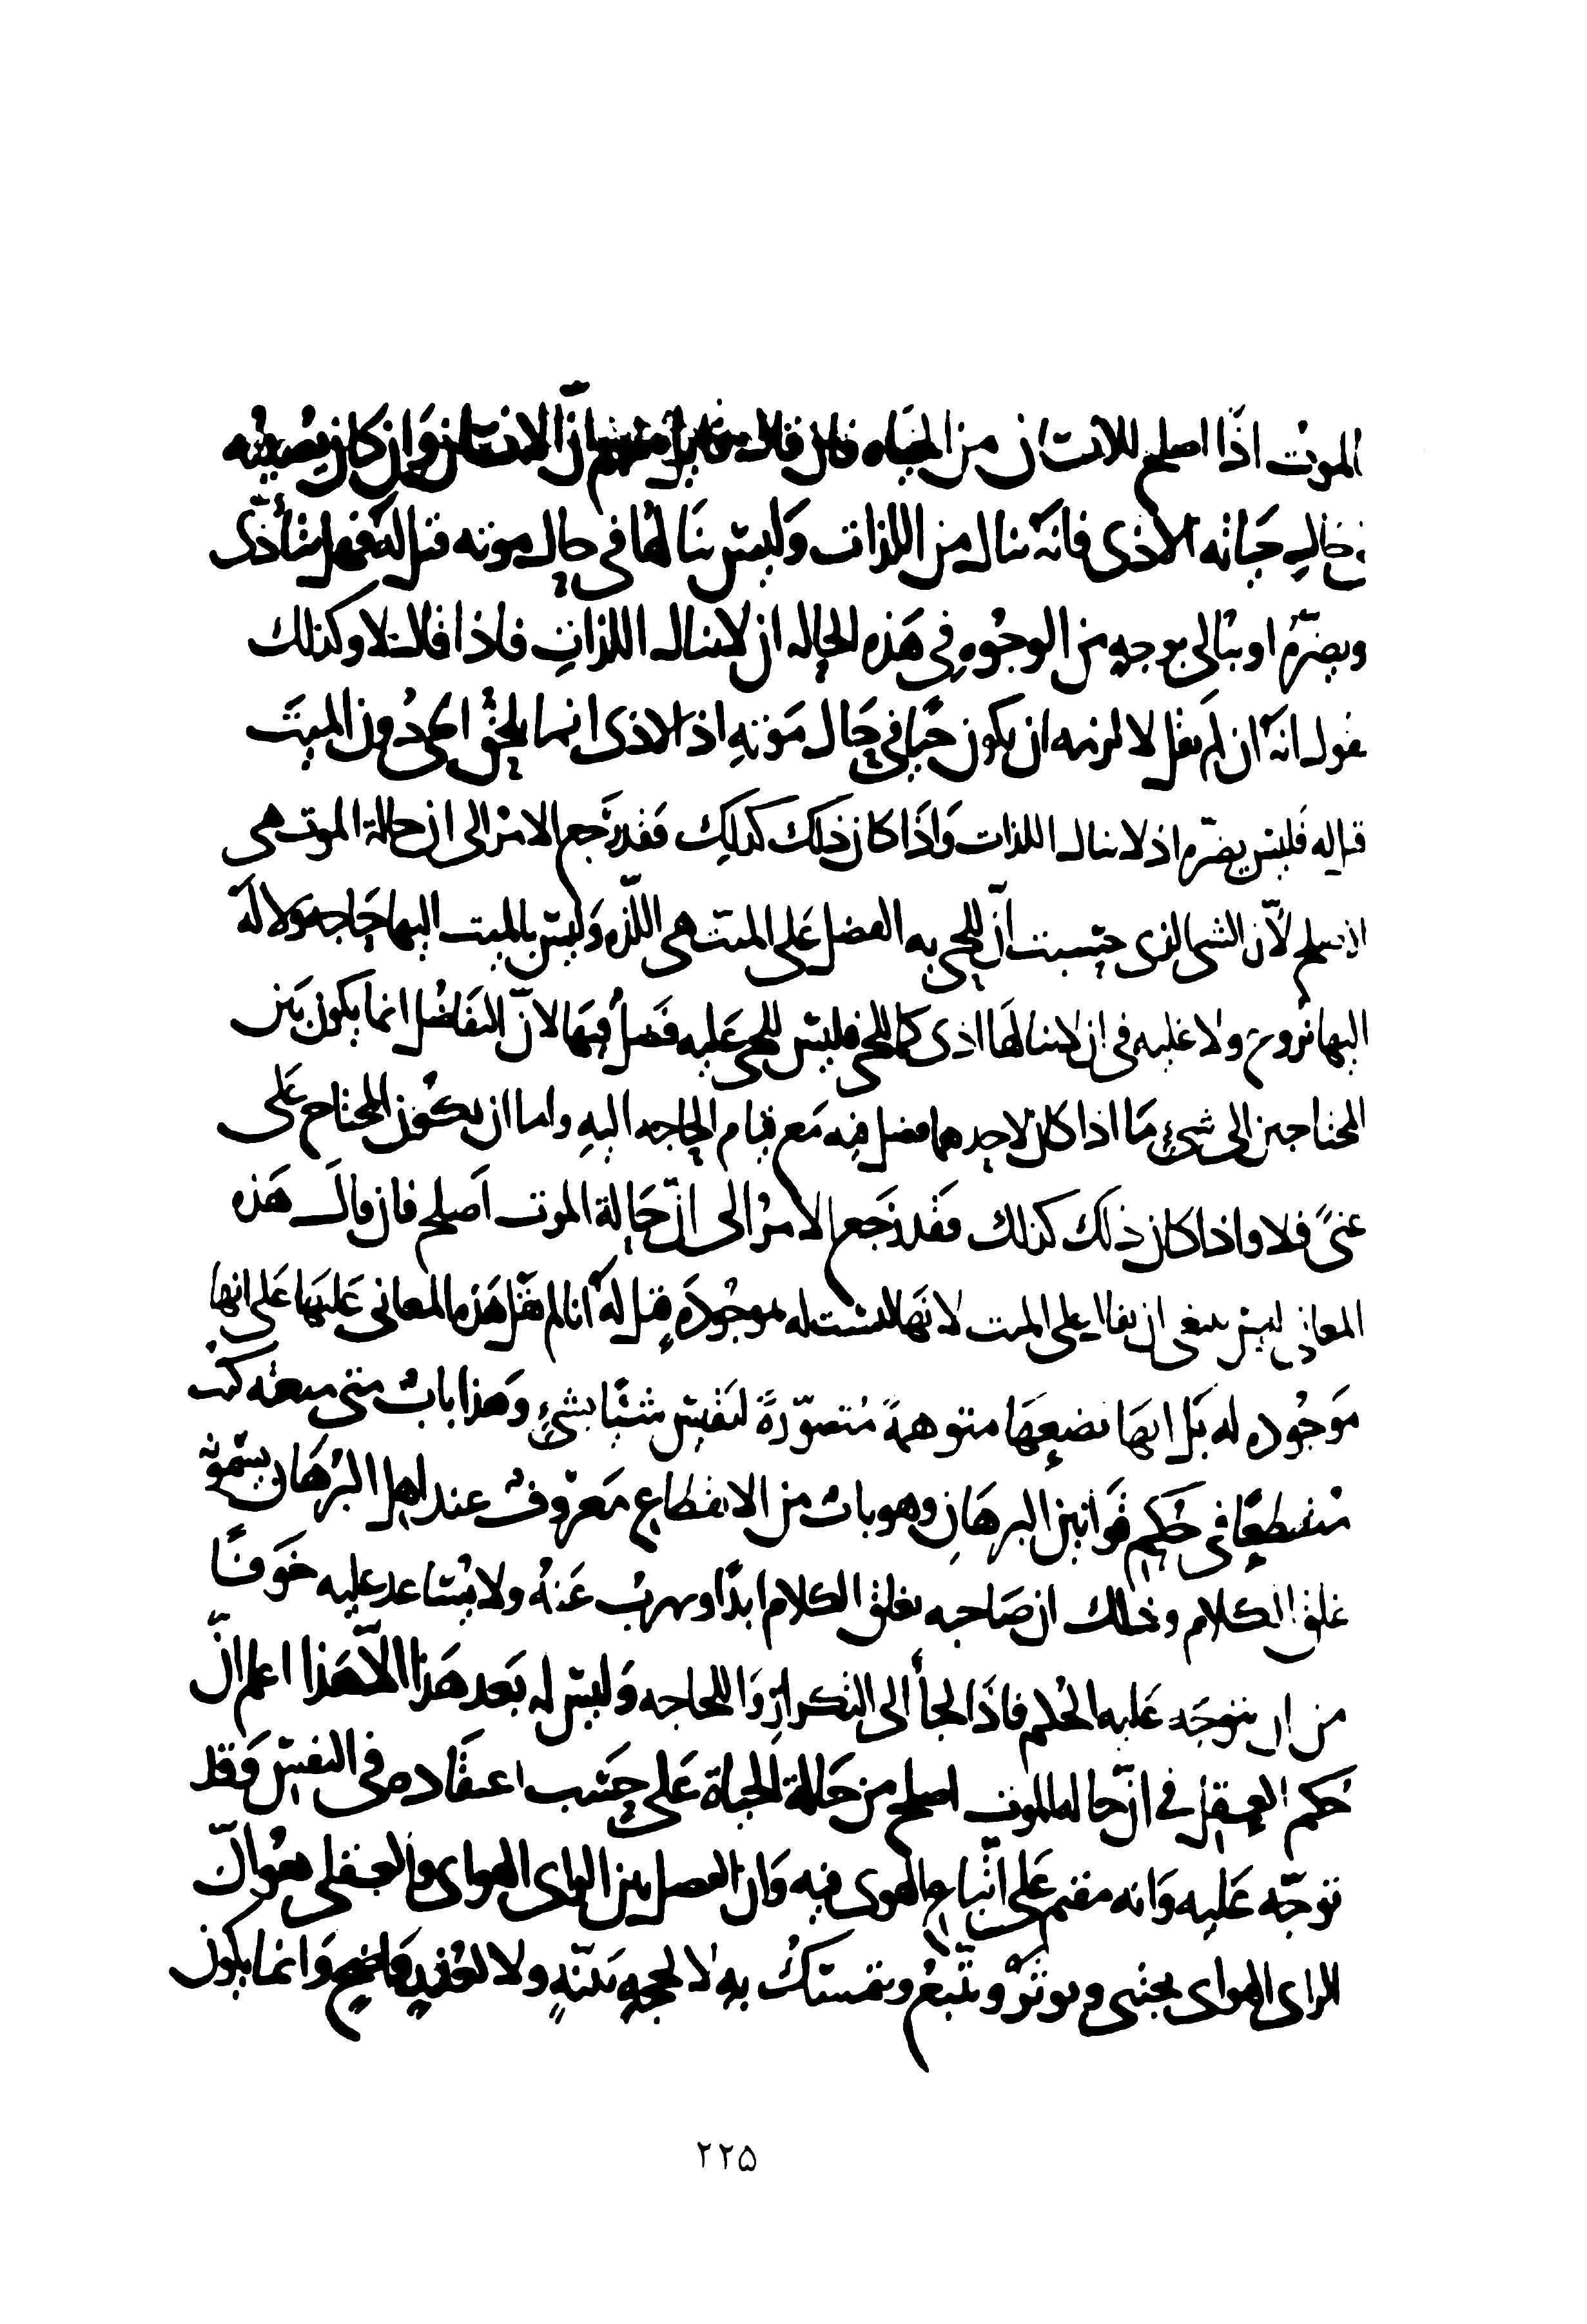 الموت اذًا اصلح للانسان من الحياه فان قال قائل منهم انّ الانسان وان كان يصيبه
في حالِ حَياته الاذى فانّه ينال من اللذات وَليس ينَالهُا في حال موته قيل له فهل يتأذّى
ويضرّهُ او يبالى بوجهٍ من الوجُوهِ فى هَذه الحاله ان لا ينال اللذات فاذا قال لا وكذلك
يقول انّه ان لم يقل لا لزمه ان يكون حَيًا فى حَال مَوتهِ اذ الاذى انما يلحق الحى دُون الميّت
قيل له فليس يضرّه اذ لا ينال اللذات وَاذَا كان ذلكَ كذلك فقد رَجع الامرُ الى ان حالة الموت هى
الاصلح لأنّ الشى الذى حسبت انّ للحى به الفضل عَلى الميت هى اللذّه وَليس بالميت اليها حَاجه وَلا لَه
اليها نزوع ولا عليه فى ان لا ينالهَا اذى كما للحى فليس للحى عَليه فَضلُ فيهَا لانّ التفَاضُل انما يكون بَين
المحتاجين الى شىءٍ مَا اذا كان لاحدهما فضل فيه مَع قيام الحاجه اليهِ واما ان يكون المحتاج عَلى
غنىً فلا واذا كان ذلك كذلك فقد رَجع الامرُ الى انّ حَالة الموت اَصلح فان قالَ هَذه
المعانى ليس ينبغى ان يقال على الميت لانهَا ليست له بموجُودَهٍ قيل لَه انا لم نقل هَذه المعانى عَليهَا عَلى انها
مَوجُوده له بَل انهَا نضعهَا متوهمةً مُتصوّرةً لنَقيس شيئًا بشىءٍ وَهذا بابٌ متى منعته كنت
منقطعًا فى حُكم قَوانين البرهَانِ وهو بابٌ من الانقطاع مَعروفٌ عند اهل البُرهَان يسَمّونه
غلق الكلام وذلك ان صَاحبه يغلق الكلام ابدًا ويهربُ عَنهُ ولا يسَاعد عليه خوَفًا
من ان يتوجَه عَليه الحُكم فاذَا لجأ الى التكرار وَاللحاجه وَليس له بَعد هَذا الّا هَذا اعلم انّ
حُكم العقل فى انّ حاله الموت اصلح من حَالة الحَياة عَلى حَسب اعتقاده فى النفس وَقد
توجّه عَليه وَانه مقيم عَلى اتّباع الهوى فيه وَان الفصل بين الراى الهواى والعقلى هُو انّ
الراى الهواى يجتبى ويوثَرُ ويُتّبعُ ويتمسّكُ بهِ لا لحجهٍ بَيّنهٍ ولا لعُذرٍ وَاضحٍ وَانما يكون
٢٢٥